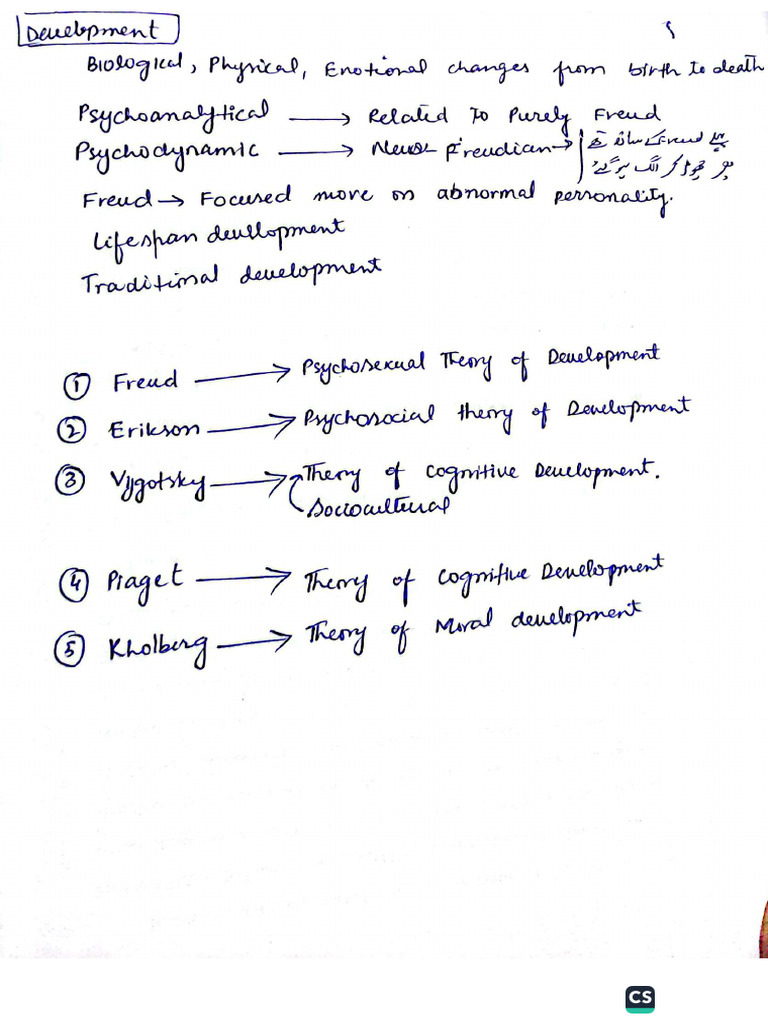 Development
Biological, Physical, Emotional changes from birth to death
Psychoanalytical → Related to Purely Freud
Psychodynamic → Freudian → پہلے Freud کے ساتھ تھے
پھر چھوڑ کر الگ ہو گئے
Freud → Focused more on abnormal personality.
Lifespan development
Traditional development
① Freud → Psychosexual Theory of Development
② Erikson → Psychosocial theory of Development
③ Vygotsky → Theory of Cognitive Development.
Sociocultural
④ Piaget → Theory of Cognitive Development
⑤ Kholberg → Theory of Moral development
CS